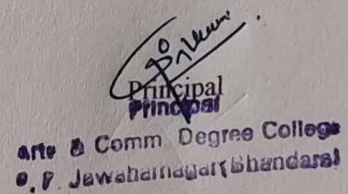 Principal
Principal
arts & Comm. Degree College
O. P. Jawaharnagar (Bhandara)